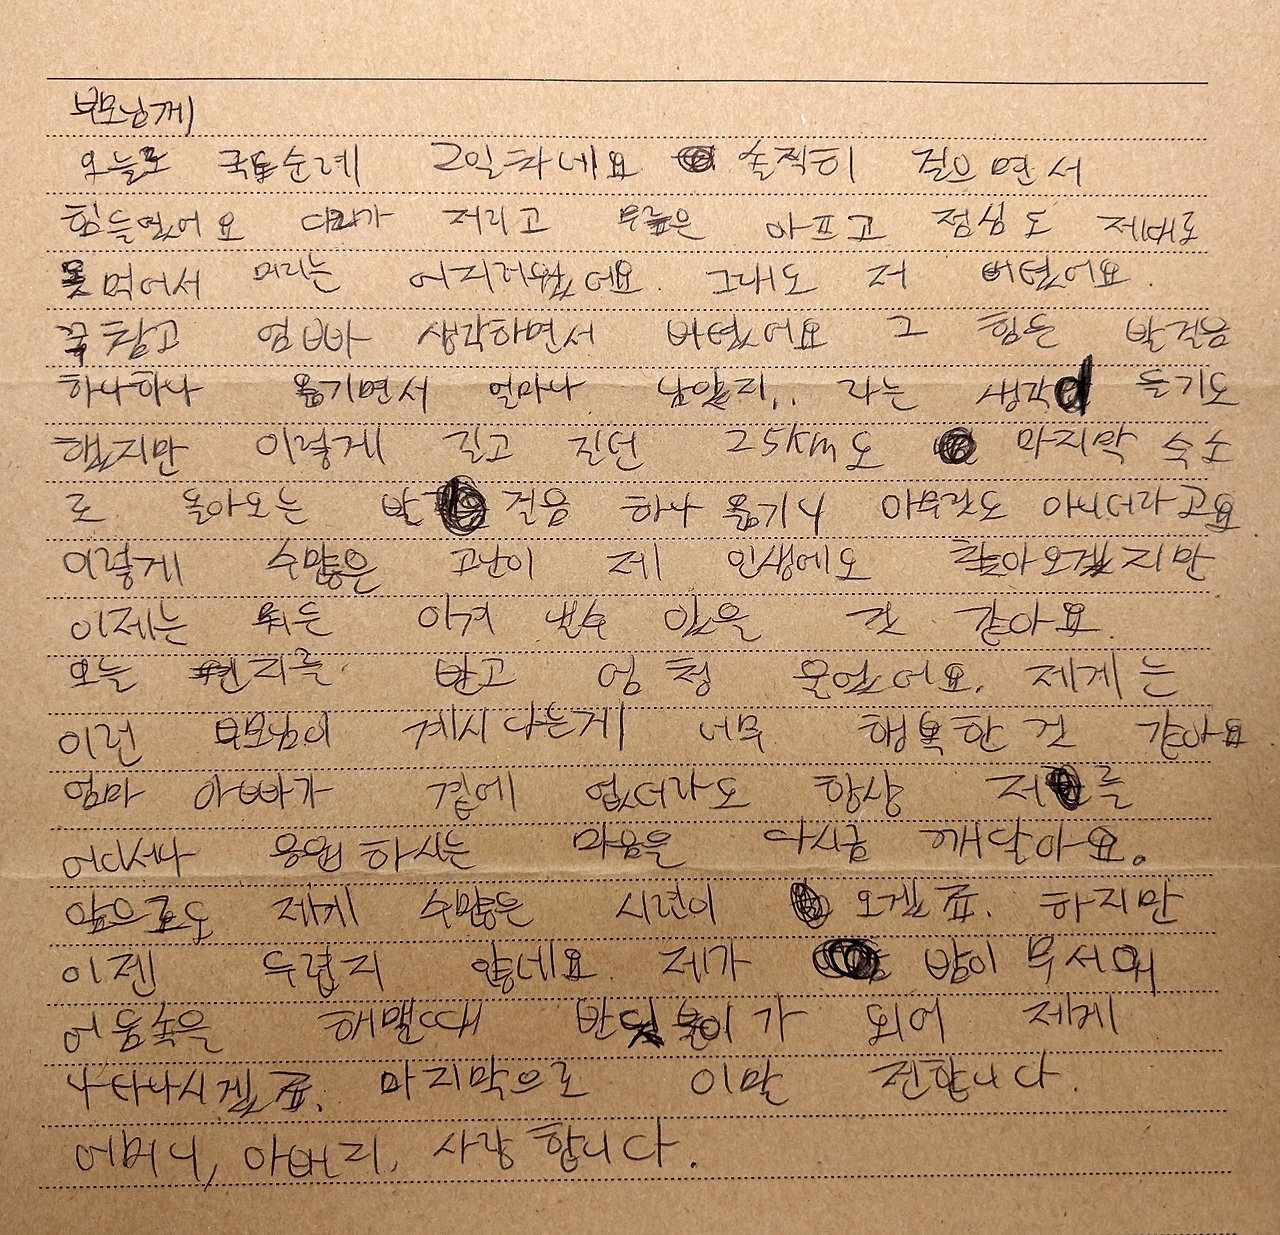 부모님께
오늘로 국토순례 2일차네요 솔직히 걸으면서
힘들었어요 다리가 저리고 무릎은 아프고 점심도 제대로
못 먹어서 머리는 어지러웠어요. 그래도 저 버텼어요.
꾹 참고 엄빠 생각하면서 버텼어요 그 힘든 발걸음
하나하나 옮기면서 얼마나 남았지.. 라는 생각이 들기도
했지만 이렇게 길고 길던 25km도 마지막 숙소
로 돌아오는 발걸음 하나 옮기니 아무것도 아니더라고요
이렇게 수많은 고난이 제 인생에도 찾아오겠지만
이제는 뭐든 이겨낼 수 있을 것 같아요.
오늘 편지를 받고 엄청 울었어요. 제게는
이런 부모님이 계시다는게 너무 행복한 것 같아요
엄마 아빠가 곁에 없더라도 항상 저를
어디서나 응원하시는 마음을 다시금 깨달아요.
앞으로도 제게 수많은 시련이 오겠죠. 하지만
이젠 두렵지 않네요. 제가 밤이 무서워
어둠속을 헤맬때 반딧불이가 되어 제게
나타나시겠죠. 마지막으로 이말 전합니다.
어머니, 아버지, 사랑합니다.